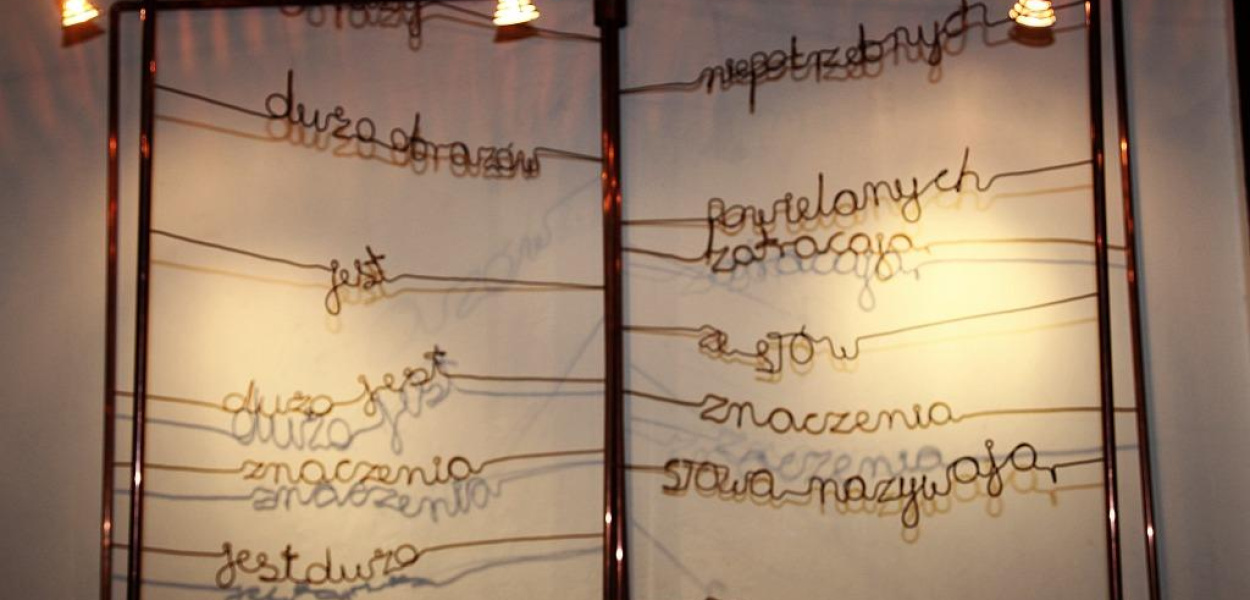 obrazy
dużo obrazów
jest
dużo jest
znaczenia
jest dużo
niepotrzebnych
powielanych
zatracają
ze słów
znaczenia
słowa nazywają